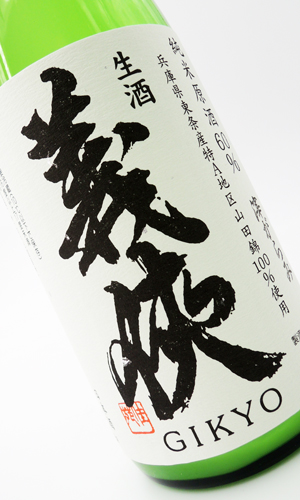 純米原酒60%
兵庫県東条産特A地区山田錦100%使用
生酒
義侠
GIKYO